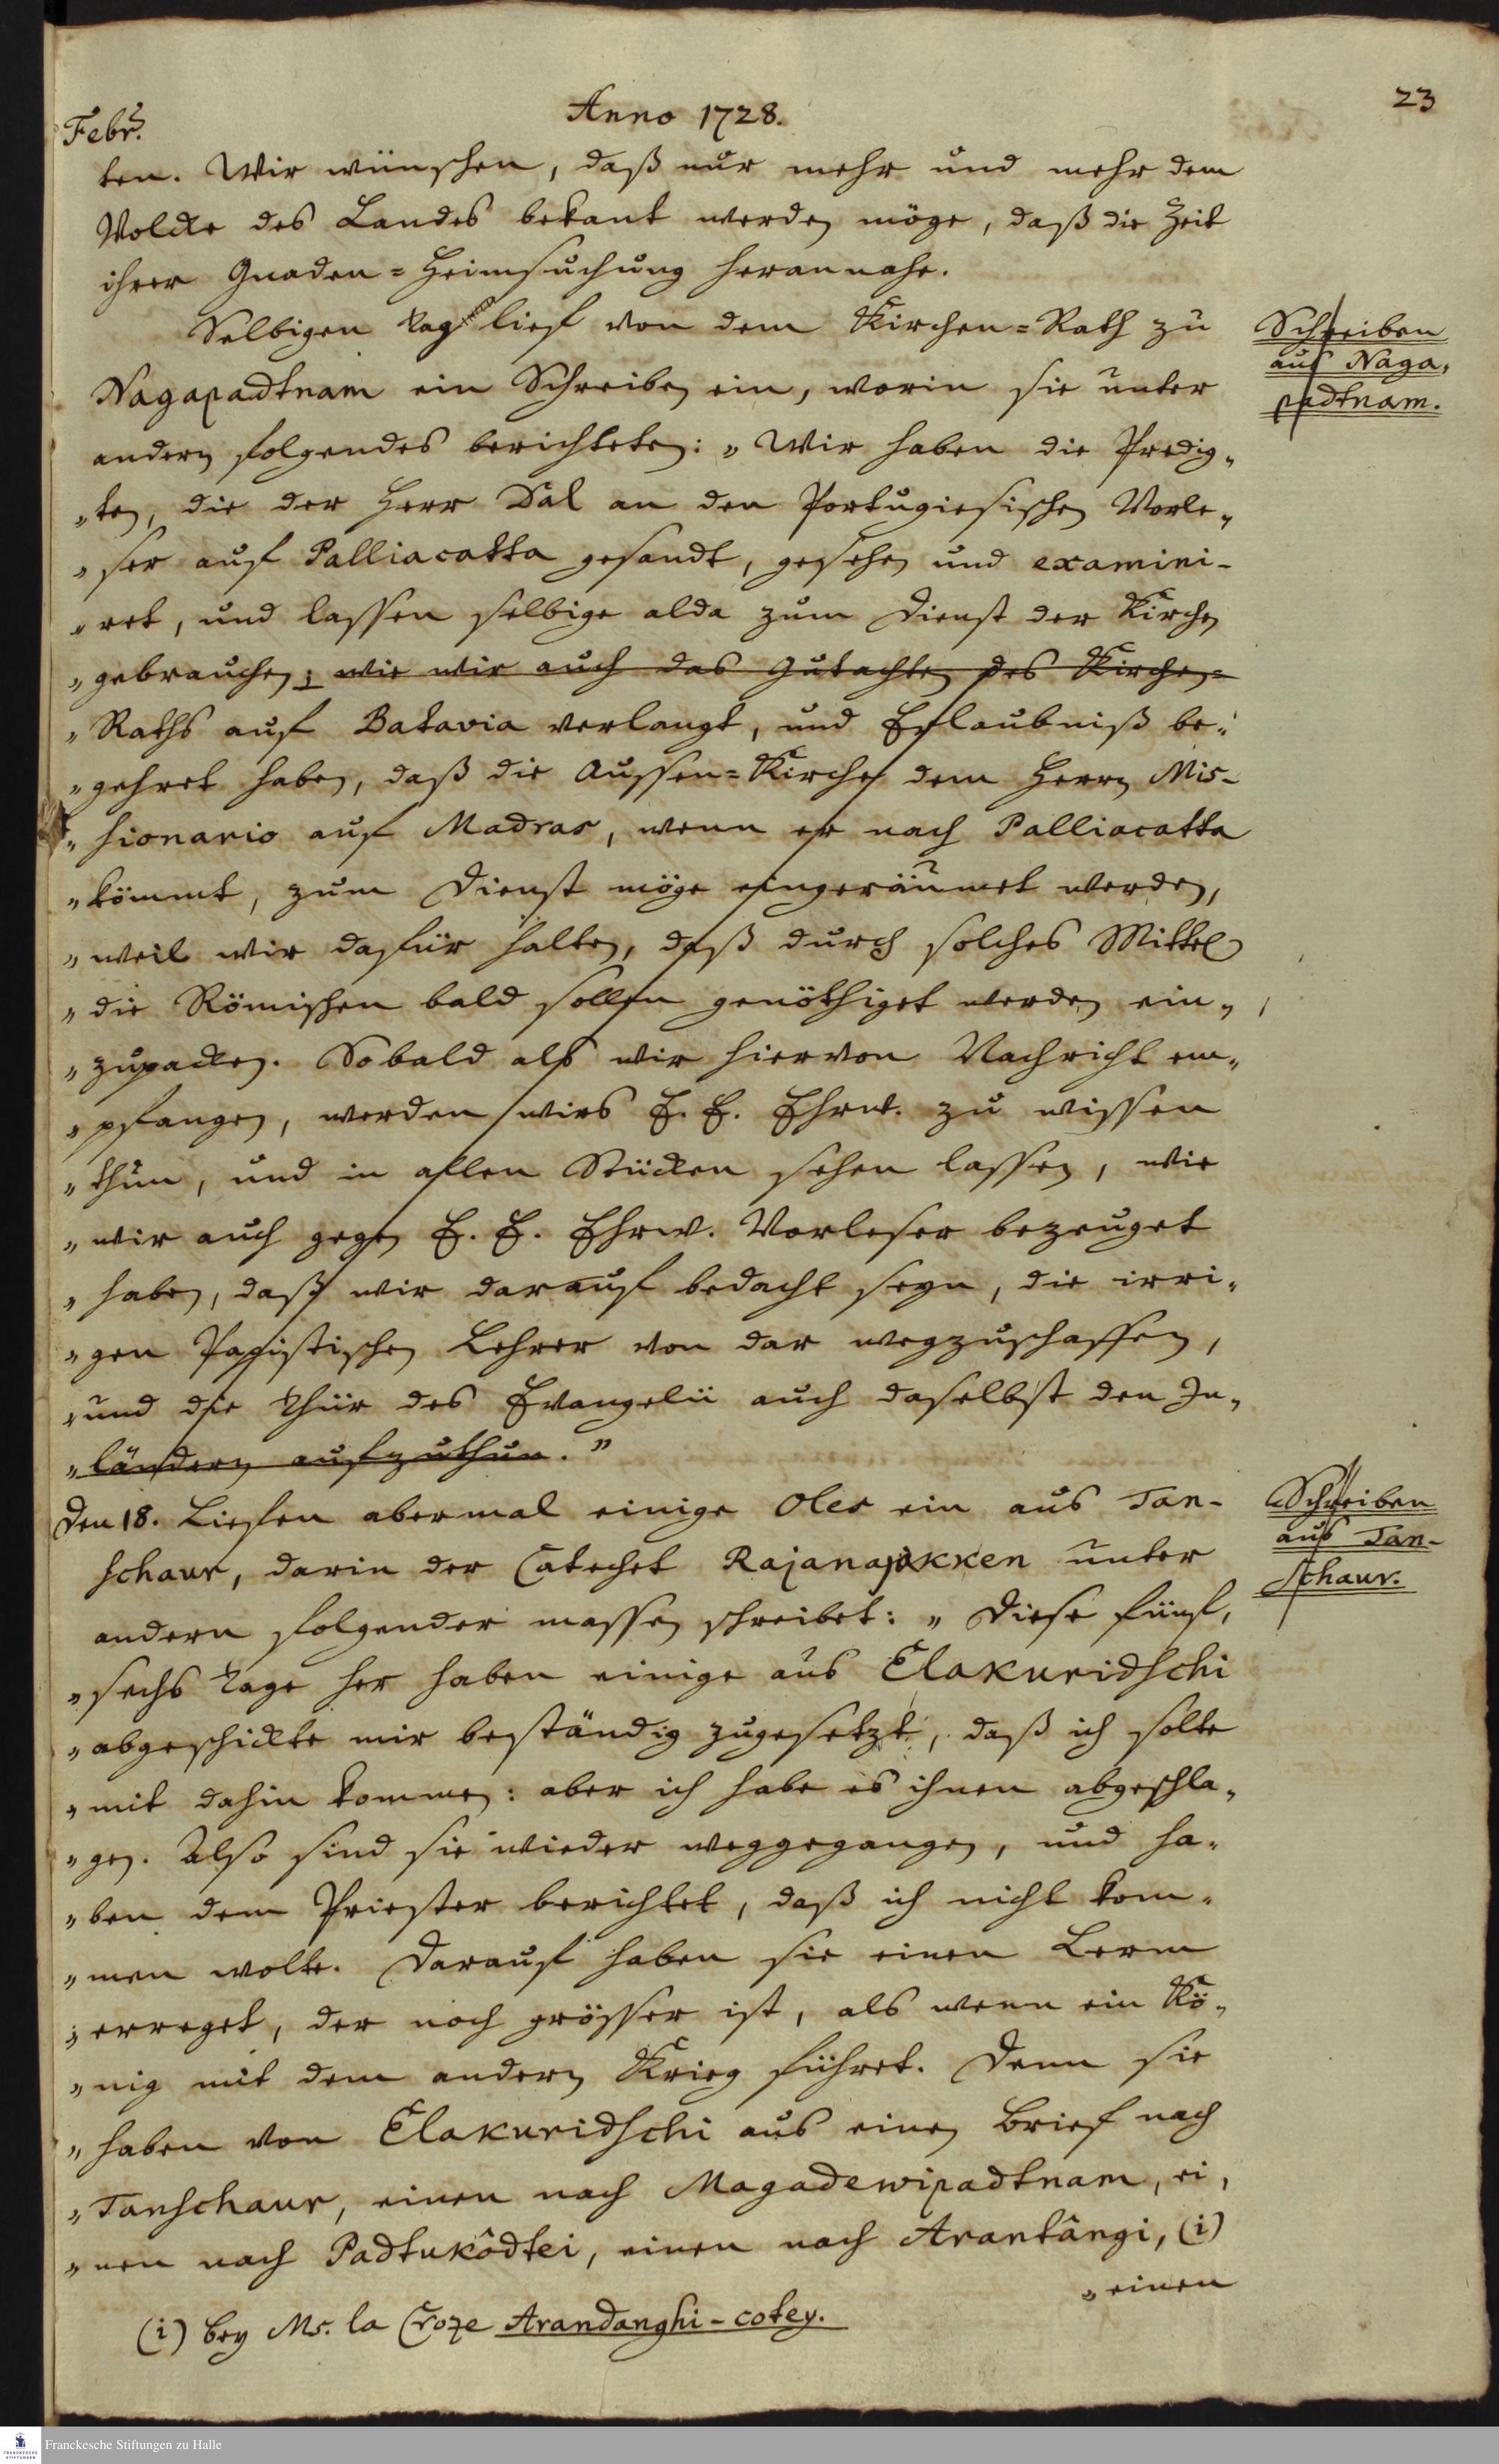 23
Anno 1728.
Febr.
ten. Wir wünschen, daß nur mehr und mehr dem
Volcke des Landes bekant werden möge, daß die Zeit
ihrer Gnaden=Heimsuchung herannahe.
Selbigen Tag lief von dem Kirchen=Rath zu
Nagapadtnam ein Schreiben ein, worin sie unter
andern folgendes berichteten: „Wir haben die Predig„
„ten, die der Herr Dal an den Portugiesischen Vorle„
„ser auf Palliacatta gesandt, gesehen und examini-
„ret, und lassen selbige alda zum Dienst der Kirchen
„gebrauchen; wie wir auch das Gutachten des Kirchen=
„Raths auf Batavia verlangt, und Erlaubniß be„
„gehret haben, daß die Aussen=Kirche dem Herrn Mis-
„sionario auf Madras, wenn er nach Palliacatta
„kömmt, zum Dienst möge eingeräumet werden,
„weil wir dafür halten, daß durch solches Mittel
„die Römischen bald sollen genöthiget werden ein„
„zupacken. Sobald als wir hiervon Nachricht em„
„pfangen, werden wirs E. E. Ehrw. zu wissen
„thun, und in allen Stücken sehen lassen, wie
„wir auch gegen E. E. Ehrw. Vorleser bezeuget
„haben, daß wir darauf bedacht seyn, die irri„
„gen Papistischen Lehrer von dar wegzuschaffen,
„und die Thür des Evangelii auch daselbst den In„
„ländern aufzuthun.”
Schreiben
aus Naga„
padtnam.
Den 18. Liefen abermal einige Oles ein aus Tan-
schaur, darin der Catechet Rajanajakken unter
andern folgender massen schreibet: „Diese fünf,
„sechs Tage her haben einige aus Elakuridschi
„abgeschickte mir beständig zugesetzt, daß ich solte
„mit dahin kommen: aber ich habe es ihnen abgeschla„
„gen. Also sind sie wieder weggegangen, und ha„
„ben dem Priester berichtet, daß ich nicht kom„
„men wolte. Darauf haben sie einen Lerm
„erreget, der noch grösser ist, als wenn ein Kö„
„nig mit dem andern Krieg führet. Denn sie
„haben von Elakuridschi aus einen Brief nach
„Tanschaur, einen nach Magadewipadtnam, ei„
„nen nach Padtukôdtei, einen nach Arantângi, (i)
„einen
Schreiben
aus Tan-
schaur.
(i) bey Mr. la Croze Arandanghi-cotey.
Franckesche Stiftungen zu Halle